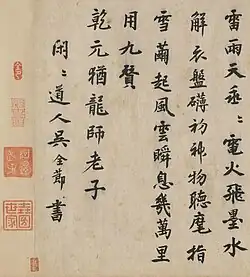 雷雨天垂〻電火飛墨水
解衣盤礴初神物聽麾指
雪繭起風雲瞬息幾萬里
用九贊
乾元猶龍師老子
閑〻道人吳全節書